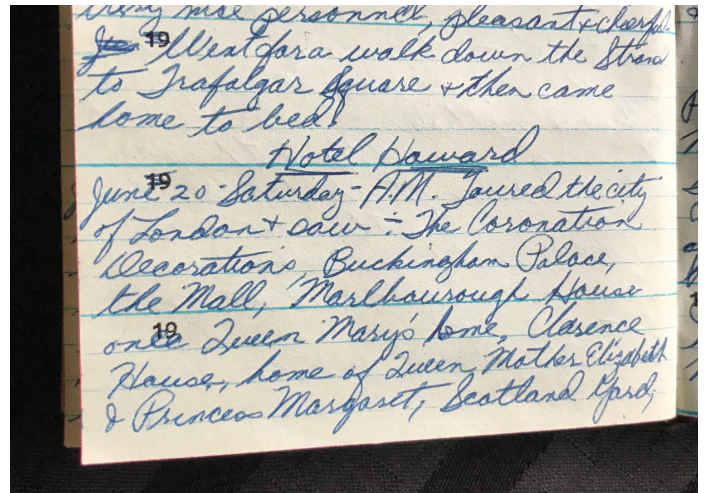 very nice personnel, pleasant & cheerful.
19 Went for a walk down the Strand
to Trafalgar Square & then came
home to bed!
Hotel Howard
19
June 20 - Saturday - A.M. Toured the city
of London & saw :- The Coronation
Decorations, Buckingham Palace,
the Mall, Marlbourough House
19
once Queen Mary's home, Clarence
House, home of Queen Mother Elizabeth
& Princess Margaret, Scotland Yard,